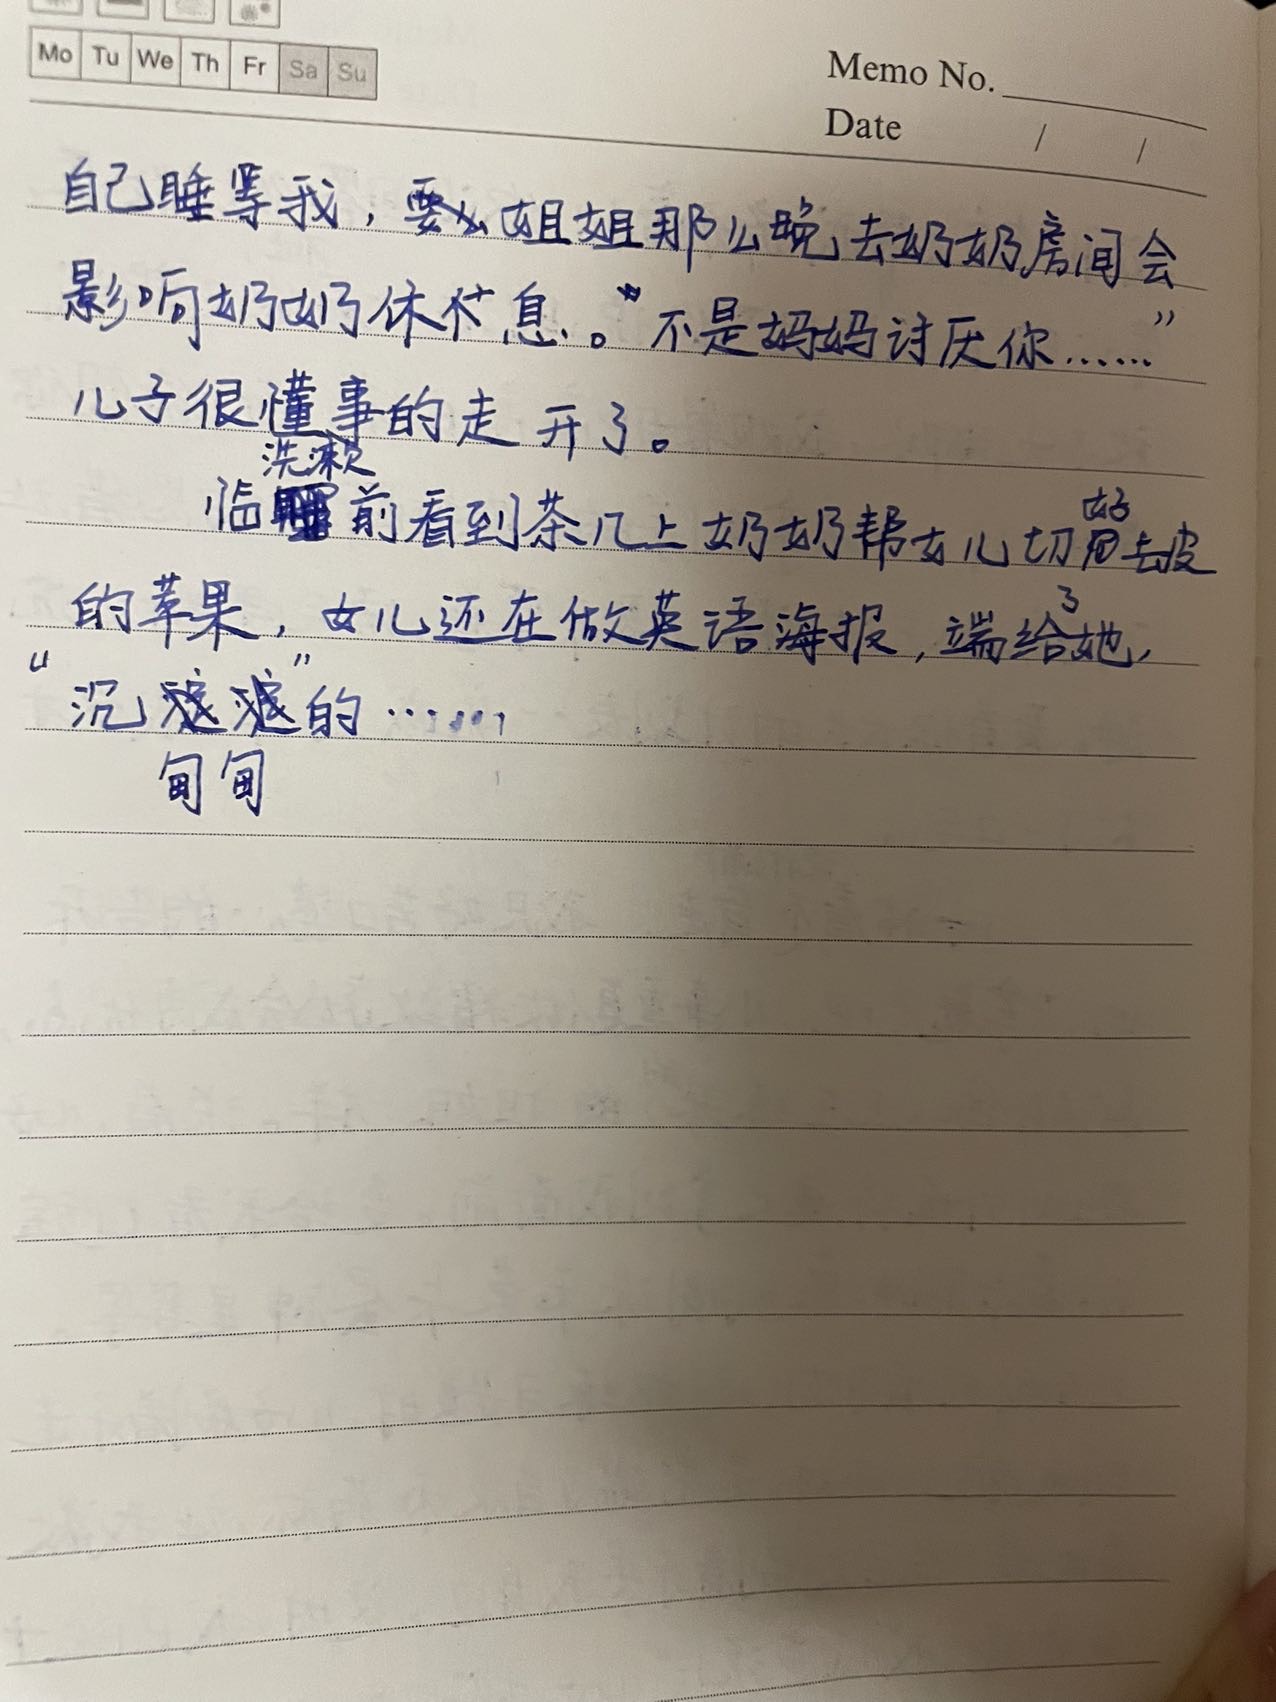 Mo Tu We Th Fr Sa Su
Memo No.
Date / /
自己睡等我，要么姐姐那么晚去奶奶房间会
影响奶奶休息。"不是妈妈讨厌你……"
儿子很懂事的走开了。
洗漱
临前看到茶几上奶奶帮女儿切好去皮
的苹果，女儿还在做英语海报，端给了她，
"沉甸甸"的……